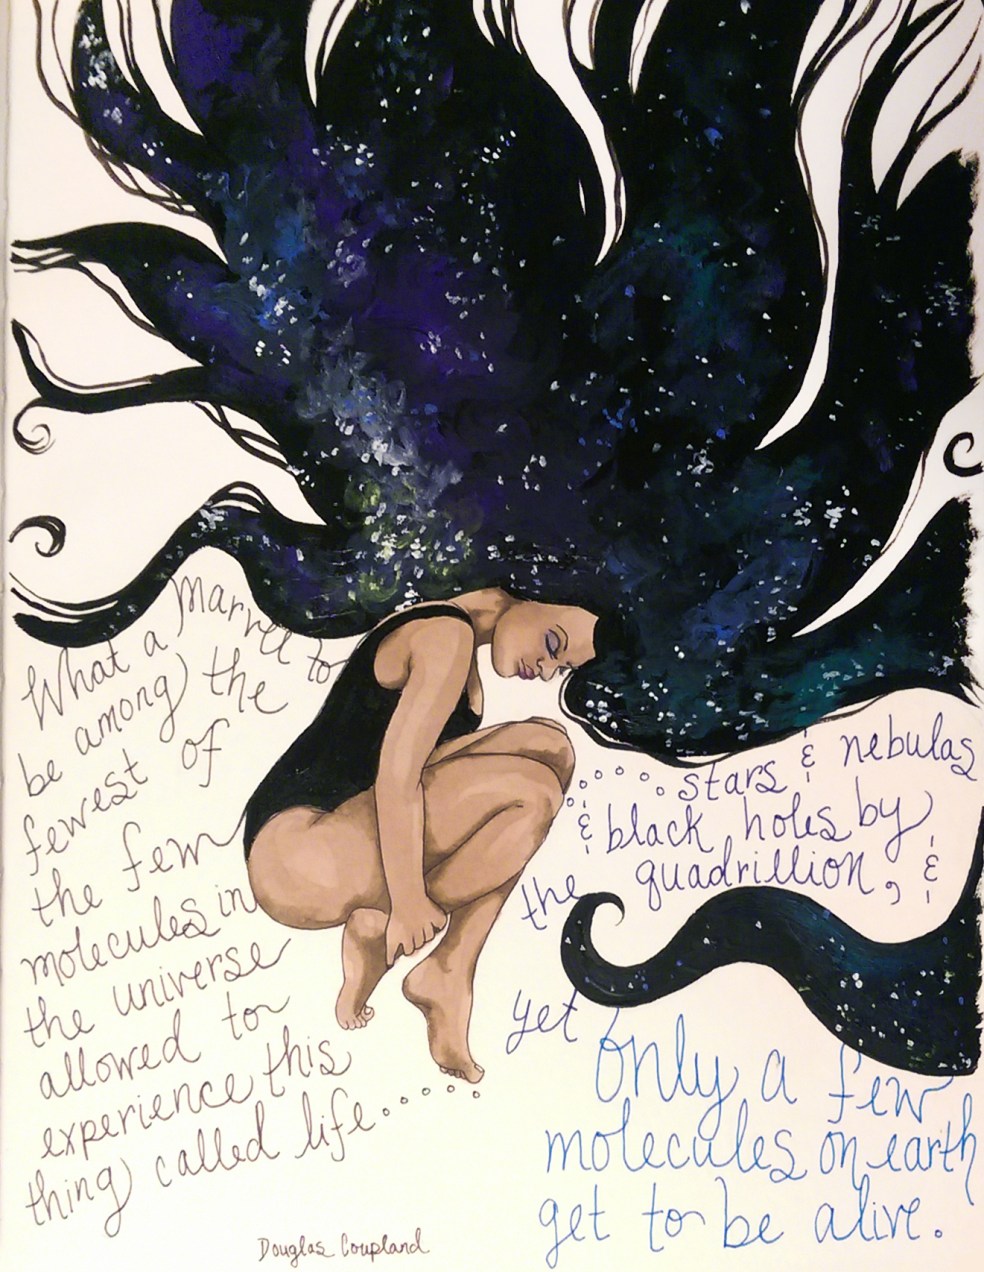 What a marvel to
be among the
fewest of
the few
molecules in
the universe
allowed to
experience this
thing called life.....
....stars & nebulas
& black holes by
the quadrillion, &
yet only a few
molecules on earth
get to be alive.
Douglas Coupland